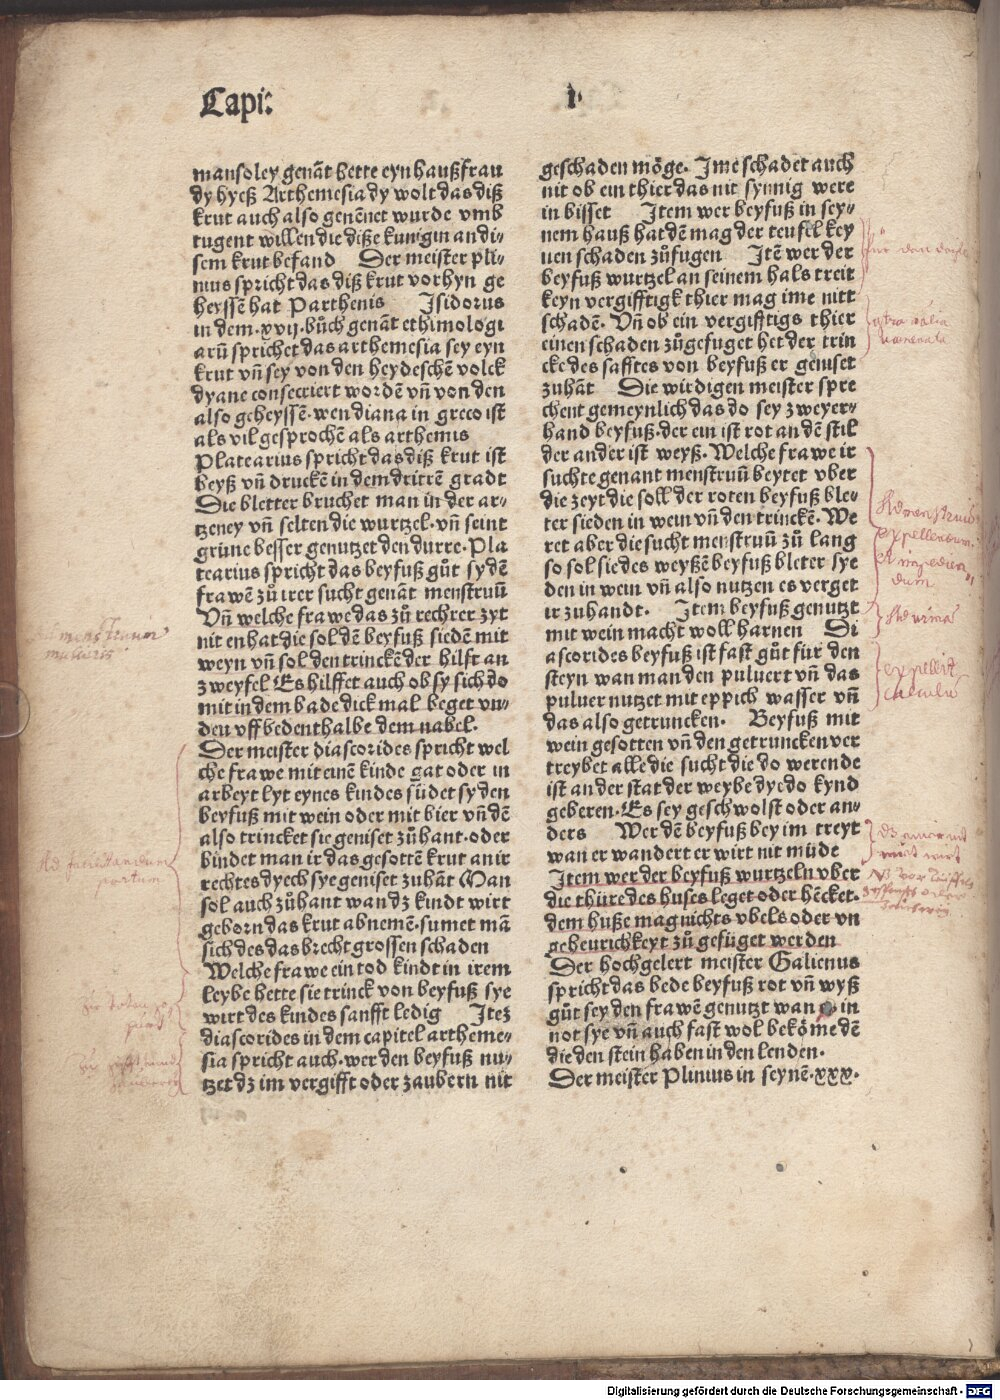 Capi: 1·
mansoley genāt hette eyn haußfrau
dy hyeß Arthemesia dy wolt das diß
krut auch also genēnet wurde vmb
tugent willen die diße kunigin an di⸗
sem krut befand Der meister pli⸗
nius spricht das diß krut vorhyn ge
heyssē hat Parthenis Isidorus
in dem·xvij·bůch genāt ethimologi
arū sprichet das arthemesia sey eyn
krut vn̄ sey von den heydeschē volck
dyane consecriert wordē vn̄ von den
also geheyssē·wen diana in greco ist
als vil gesprochē als arthemis
Platearius spricht das diß krut ist
heyß vn̄ druckē in dem dritrē gradt
Die bletter bruchet man in der ar⸗
tzeney vn̄ selten die wurtzel·vn̄ seint
grüne besser genutzet den durre·Pla
tearius spricht das beyfuß gůt sy dē
frawē zů irer sucht genāt menstruū
Vn̄ welche frawe das zů rechrer zyt
nit enhat die sol dē beyfuß siedē mit
weyn vn̄ sol den trinckē der hilft an
zweyfel Es hilffet auch ob sy sich do
mit in dem bade dick mal beget vn⸗
den vff bedenthalbe dem nabel.
Der meister diascorides spricht wel
che frawe mit einē kinde gat oder in
arbeyt lyt eynes kindes südet sy den
beyfuß mit wein oder mit bier vn̄ dē
also trincket sie geniset zůhant·oder
bindet man ir das gesottē krut an ir
rechtes dyech sye geniset zuhāt Man
sol auch zůhant wan dz kindt wirt
geborn das krut abnemē·sumet mā
sich des das brecht grossen schaden
Welche frawe ein tod kindt in irem
leybe hette sie trinck von beyfuß sye
wirt des kindes sanfft ledig Itez
diascorides in dem capitel artheme⸗
sia spricht auch·wer den beyfuß nu⸗
tzet dz im vergifft oder zaubern nit
geschaden möge· Ime schadet auch
nit ob ein thier das nit synnig were
in bisset Item wer beyfuß in sey⸗
nem hauß hat dē mag der teufel key
nen schaden zůfugen Itē wer der
beyfuß wurtzel an seinem hals treit
keyn vergifftigk thier mag ime nitt
schadē· Vn̄ ob ein vergifftigs thier
einen schaden zůgefuget het der trin
cke des safftes von beyfuß er geniset
zuhāt Die wirdigen meister spre
chent gemeynlich das do sey zweyer⸗
hand beyfuß·der ein ist rot an dē stil
der ander ist weyß·Welche frawe ir
suchte genant menstruū beytet vber
die zeyt die soll der roten beyfuß ble⸗
ter sieden in wein vn̄ den trinckē·We
ret aber die sucht menstruū zů lang
so sol sie des weyßē beyfuß bleter sye
den in wein vn̄ also nutzen es verget
ir zuhandt· Item beyfuß genutzt
mit wein macht woll harnen Di
ascorides beyfuß ist fast gůt für den
steyn wan man den puluert vn̄ das
puluer nutzet mit eppich wasser vn̄
das also getruncken· Beyfuß mit
wein gesotten vn̄ den getruncken ver
treybet alle die sucht die do werende
ist an der stat der weybe dye do kynd
geberen·Es sey geschwolst oder an⸗
ders Wer dē beyfuß bey im treyt
wan er wandert er wirt nit müde
Item wer der beyfuß wurtzeln vber
die thüre des huses leget oder hēcket·
dem huße mag nichts vbels oder vn
geheurichkeyt zů gefüget werden
Der hochgelert meister Galienus
spricht das bede beyfuß rot vn̄ wyß
gůt sey den frawē genutzt wan in
not sye vn̄ auch fast wol bekōme dē
die den stein haben in den lenden·
Der meister Plinius in seynē·xxx·
menstruum
mulieris
Ad facilitandum
partum
contra ‌venenata
Ad menstruū
expellendum.
Et impedien
dum
Ad urinā
expellit
calculū
Digitalisierung gefördert durch die Deutsche Forschungsgemeinschaft - DFG